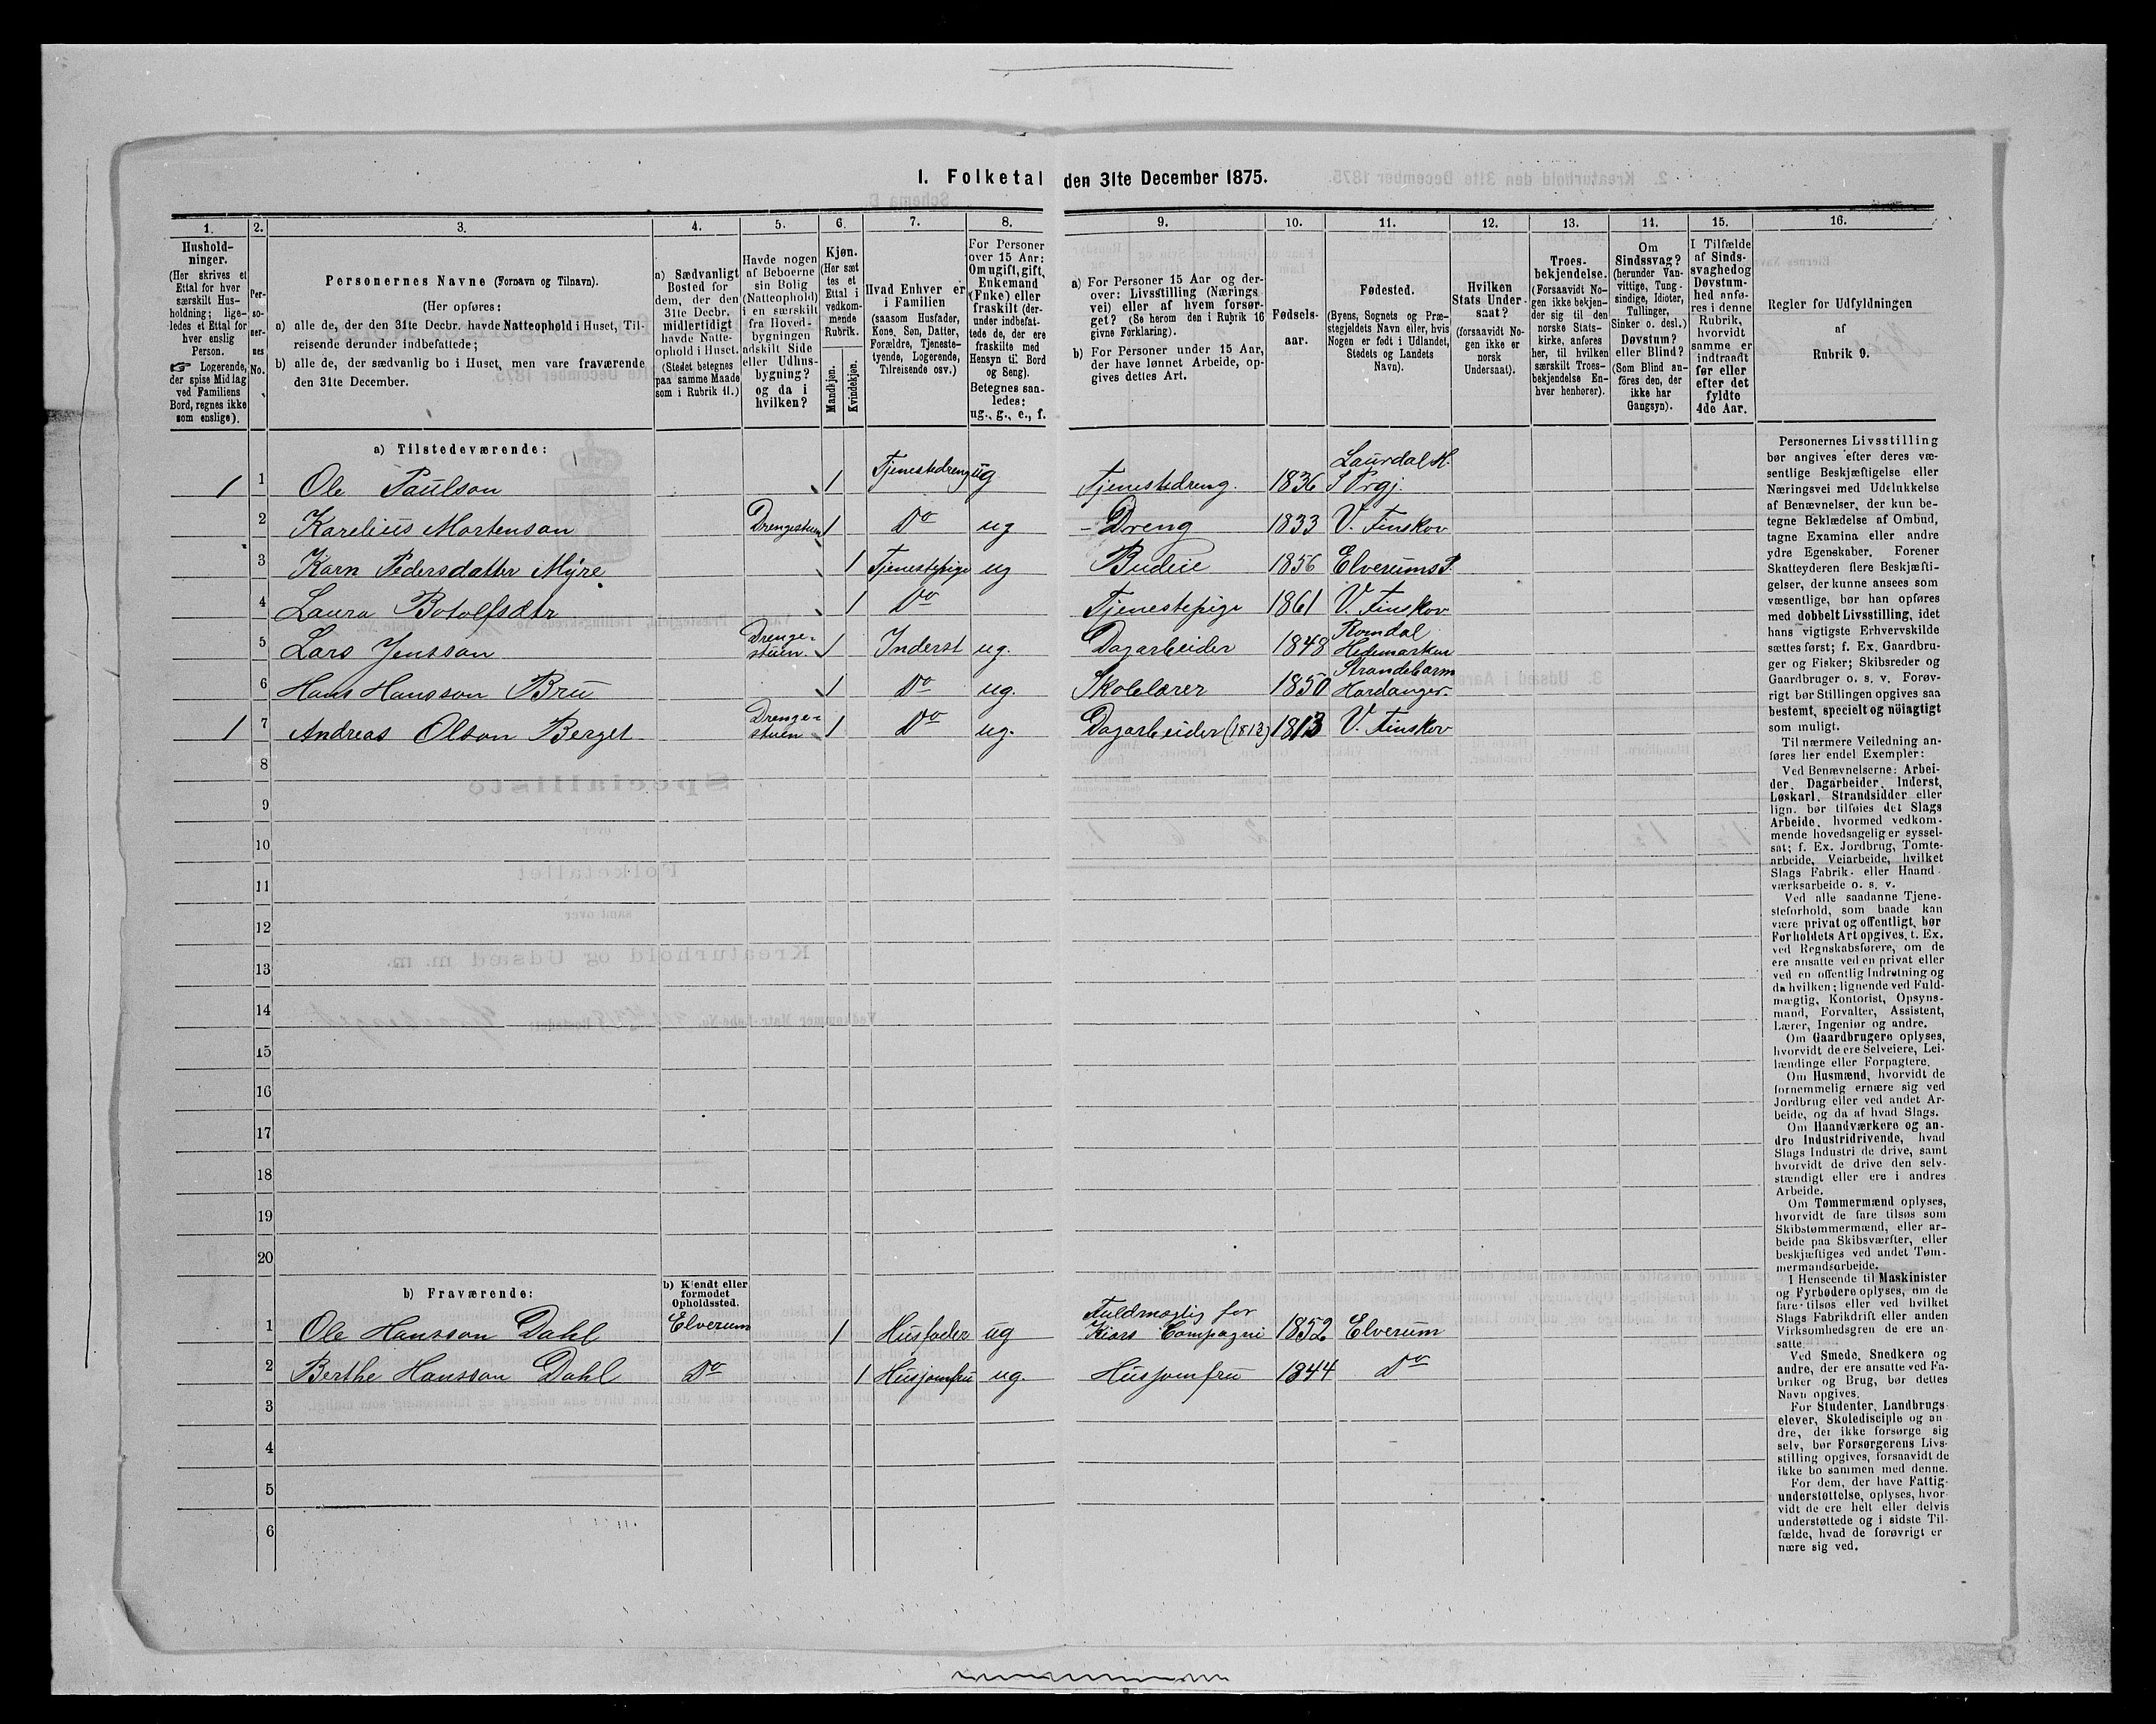 I. Folketal den 31te December 1875.
1. 2. 3. 4. 5. 6. 7. 8. 9. 10. 11. 12. 13. 14. 15. 16.
Hushold-
ninger.
(Her skrives et
Ettal for hver
særskilt Hus-
holdning; lige-
ledes et Ettal for
hver enslig
Person.
☞ Logerende,
der spise Midlag
ved Familiens
Bord, regnes ikke
som enslige).
Per-
so-
ner-
nes
No.
Personernes Navne (Fornavn og Tilnavn).
(Her opføres:
a) alle de, der den 31te Decbr. havde Natteophold i Huset, Til-
reisende derunder indbefattede;
b) alle de, der sædvanlig bo i Huset, men vare fraværende
den 31te December.
a) Sædvanligt
Bosted for
dem, der den
31te Decbr.
midlertidigt
havde Natte-
ophold i Huset.
(Stedet betegnes
paa samme Maade
som i Rubrik 11.)
Havde nogen
af Beboerne
sin Bolig
(Natteophold)
i en særskilt
fra Hoved-
bygningen
adskilt Side
eller Udhus-
bygning?
og da i
hvilken?
Kjøn.
(Her sæt
tes et
Ettal i
vedkom-
mende
Rubrik.
Mandkjøn.
Kvindekjøn.
Hvad Enhver er
i Familien
(saasom Husfader,
Kone, Søn, Datter,
Forældre, Tjeneste-
tyende, Logerende,
Tilreisende osv.)
For Personer
over 15 Aar:
Om ugift, gift,
Enkemand
(Enke) eller
fraskilt (der-
under indbefat-
tede, der ere
fraskilte med
Hensyn til Bord
og Seng).
Betegnes saa-
ledes:
ug., g., e., f.
a) For Personer 15 Aar og der-
over: Livsstilling (Nærings
vei) eller af hvem forsør-
get? (Se herom den i Rubrik 16
givne Forklaring).
b) For Personer under 15 Aar,
der have lønnet Arbeide, op-
gives dettes Art.
Fødsels-
aar.
Fødested.
(Byens, Sognets og Præ-
stegjeldets Navn eller, hvis
Nogen er født i Udlandet,
Stedets og Landets
Navn).
Hvilken
Stats Under-
saat?
(forsaavidt No-
gen ikke er
norsk
Undersaat).
Troes-
bekjendelse.
(Forsaavidt No-
gen ikke bekjen-
der sig til den
norske Stats-
kirke, anføres
her, til hvilken
særskilt Troes-
bekjendelse En-
hver henhører).
Om
Sindssvag?
(herunder Van-
vittige, Tung-
sindige, Idioter,
Tullinger,
Sinker o. desl.)
Døvstum?
eller Blind?
(Som Blind an-
føres den, der
ikke har
Gangsyn).
I Tilfælde
af Sinds-
svaghed og
Døvstum-
hed anfø-
res i denne
Rubrik,
hvorvidt
samme er
indtraadt
før eller
efter det
fyldte
4de Aar.
Regler for Udfyldningen
af
Rubrik 9.
a) Tilstedeværende:
1 1 Ole Paulson 1 Tjenestedreng ug Tjenestdreng. 1836 Laurdal H. S Prgj.
2 Karelius Mortenson Drengestuen 1 Do ug Dreng 1833 V. Finskov
3 Karn Pedersdatter Myre 1 Tjenestepige ug Budeie 1856 Elverums P.
4 Laura Botolfsdtr 1 Do Tjenestepige 1861 V. Finskov
5 Lars Jensson Drenge-stuen 1 Inderst ug. Dagarbeider 1848 Romdal Hedemarken
6 Hans Hansson Bru 1 Do ug. Skolelærer 1850 Strandebarm Hardanger
1 7 Andreas Olson Berget Drenge-stuen 1 Do ug. Dagarbeider (1813) 1813 V. Finskov
8
9
10
11
12
13
14
15
16
17
18
19
20
b) Fraværende:
b) Kjendt eller
formodet
Opholdssted.
1 Ole Hansson Dahl Elverum 1 Husfader ug Fuldmægtig for Kiærs Compagni 1852 Elverum
2 Berthe Hansson Dahl Do 1 Husjomfru ug. Husjomfru 1844 Do
3
4
5
6
Personernes Livsstilling
bør angives efter deres væ-
sentlige Beskjæftigelse eller
Næringsvei med Udelukkelse
af Benævnelser, der kun be-
tegne Beklædelse af Ombud,
tagne Examina eller andre
ydre Egenskaber. Forener
Skatteyderen flere Beskjæfti-
gelser, der kunne ansees som
væsentlige, bør han opføres
med dobbelt Livsstilling, idet
hans vigtigste Erhvervskilde
sættes først; f. Ex. Gaardbru-
ger og Fisker; Skibsreder og
Gaardbruger o. s. v. Forøv-
rigt bør Stillingen opgives saa
bestemt, specielt og nöiagtigt
som muligt.
Til nærmere Veiledning an-
føres her endel Exempler:
Ved Benævnelserne: Arbei-
der, Dagarbeider, Inderst,
Løskarl, Strandsidder eller
lign. bør tilføies det Slags
Arbeide, hvormed vedkom-
mende hovedsagelig er syssel-
sat; f. Ex. Jordbrug, Tomte-
arbeide, Veiarbeide, hvilket
Slags Fabrik- eller Haand-
værksarbeide o. s. v.
Ved alle saadanne Tjene-
steforhold, som baade kan
være privat og offentligt, bør
Forholdets Art opgives, t. Ex.
ved Regnskabsførere, om de
ere ansatte ved en privat eller
ved en offentlig Indretning og
da hvilken; lignende ved Fuld-
mægtig, Kontorist, Opsyns-
mand, Forvalter, Assistent,
Lærer, Ingeniør og andre.
Om Gaardbrugere oplyses,
hvorvidt de ere Selveiere, Lei-
lændinge eller Forpagtere.
Om Husmænd, hvorvidt de
fornemmelig ernære sig ved
Jordbrug eller ved andet Ar-
beide, og da af hvad Slags.
Om Haandværkere og an-
dre Industridrivende, hvad
Slags Industri de drive, samt
hvorvidt de drive den selv-
stændigt eller ere i andres
Arbeide.
Om Tømmermænd oplyses,
hvorvidt de fare tilsøs som
Skibstømmermænd, eller ar-
beide paa Skibsværfter, eller
beskjæftiges ved andet Tøm-
mermandsarbeide.
I Henseende til Maskinister
og Fyrbødere oplyses, om de
fare tilsøs eller ved hvilket
Slags Fabrikdrift eller anden
Virksomhedsgren de ere an-
satte.
Ved Smede, Snedkere og
andre, der ere ansatte ved Fa-
briker og Brug, bør dettes
Navn opgives.
For Studenter, Landbrugs-
elever, Skoledisciple og an-
dre, der ikke forsørge sig
selv, bør Forsørgerens Livs-
stilling opgives, forsaavidt de
ikke bo sammen med denne.
For dem, der have Fattig-
understøttelse, oplyses, hvor-
vidt de ere helt eller delvis
understøttede og i sidste Til-
fælde, hvad de forøvrigt er
nære sig ved.